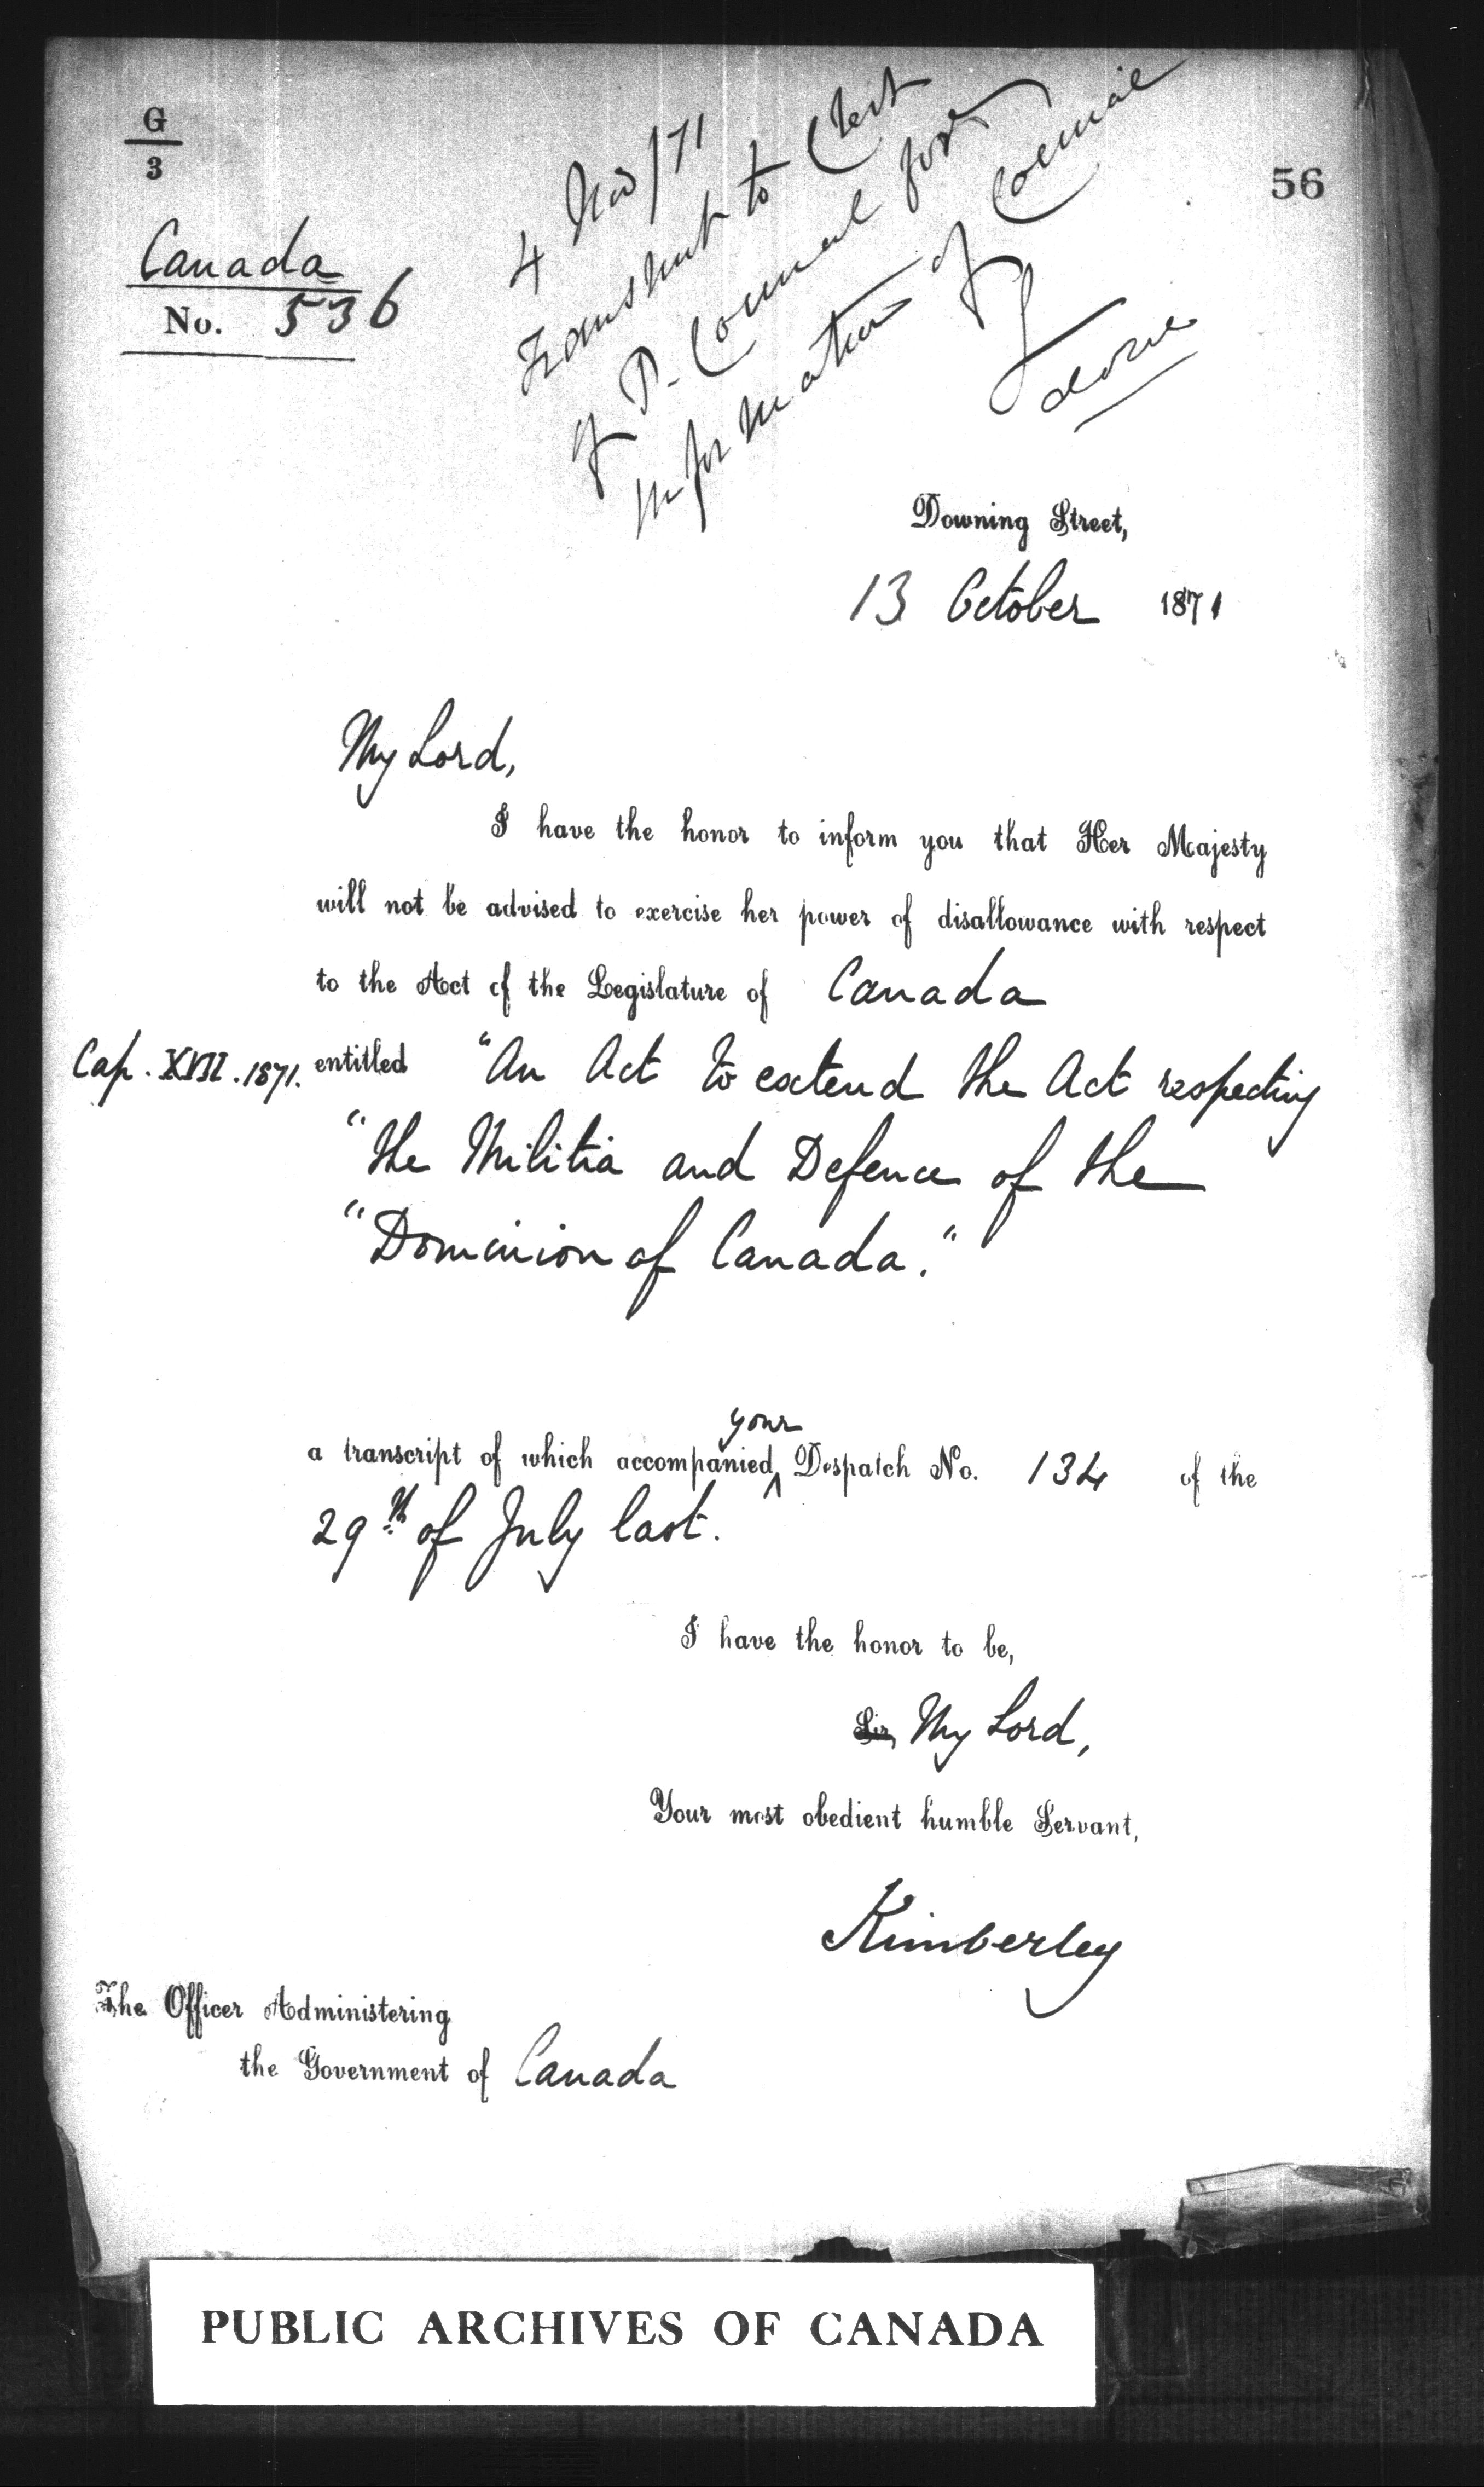 G
3
56
Canada
No. 536
4 Nov/71
Transmit to Clerk
of P. Council for
information of Council
done
Downing Street,
13 October 1871
My Lord,
I have the honor to inform you that Her Majesty
will not be advised to exercise her power of disallowance with respect
to the Act of the Legislature of Canada
Cap. XVII. 1871. entitled "An Act to extend the Act respecting
"the Militia and Defence of the
"Dominion of Canada."
your
a transcript of which accompanied ^ Despatch No. 134 of the
29th of July last.
I have the honor to be,
Sir, My Lord,
Your most obedient humble Servant,
Kimberley
The Officer Administering
the Government of Canada
PUBLIC ARCHIVES OF CANADA